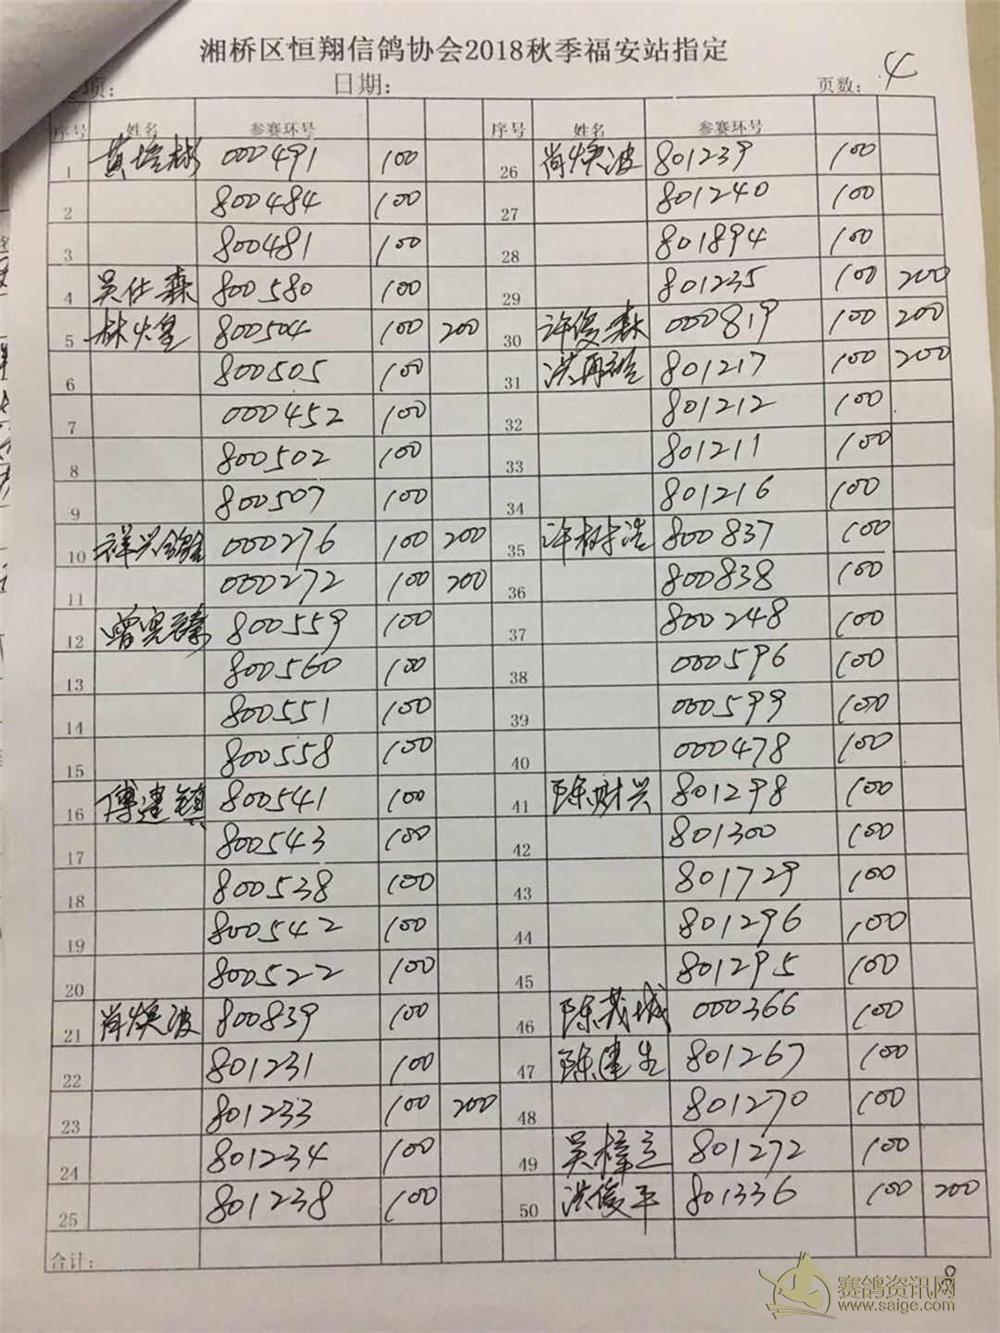 湘桥区恒翔信鸽协会2018秋季福安站指定
项: 日期: 页数: 4
序号 姓名 参赛环号 序号 姓名 参赛环号
1 黄培彬 000491 100 26 肖焕波 801239 100
2 800484 100 27 801240 100
3 800481 100 28 801894 100
4 吴仕森 800580 100 29 801235 100 200
5 林火皇 800504 100 200 30 许俊森 000819 100 200
6 800505 100 31 洪再 801217 100 200
7 000452 100 32 801212 100
8 800502 100 33 801211 100
9 800507 100 34 801216 100
10 祥兴鸽舍 000276 100 200 35 许树浩 800837 100
11 000272 100 200 36 800838 100
12 曾宪臻 800559 100 37 800248 100
13 800560 100 38 000596 100
14 800551 100 39 000599 100
15 800558 100 40 000478 100
16 傅建镇 800541 100 41 陈财兴 801298 100
17 800543 100 42 801300 100
18 800538 100 43 801729 100
19 800542 100 44 801296 100
20 800522 100 45 801295 100
21 肖焕波 800839 100 46 陈茂城 000366 100
22 801231 100 47 陈建生 801267 100
23 801233 100 200 48 801270 100
24 801234 100 49 吴梓立 801272 100
25 801238 100 50 洪俊平 801336 100 200
合计:
赛鸽资讯网
www.saige.com